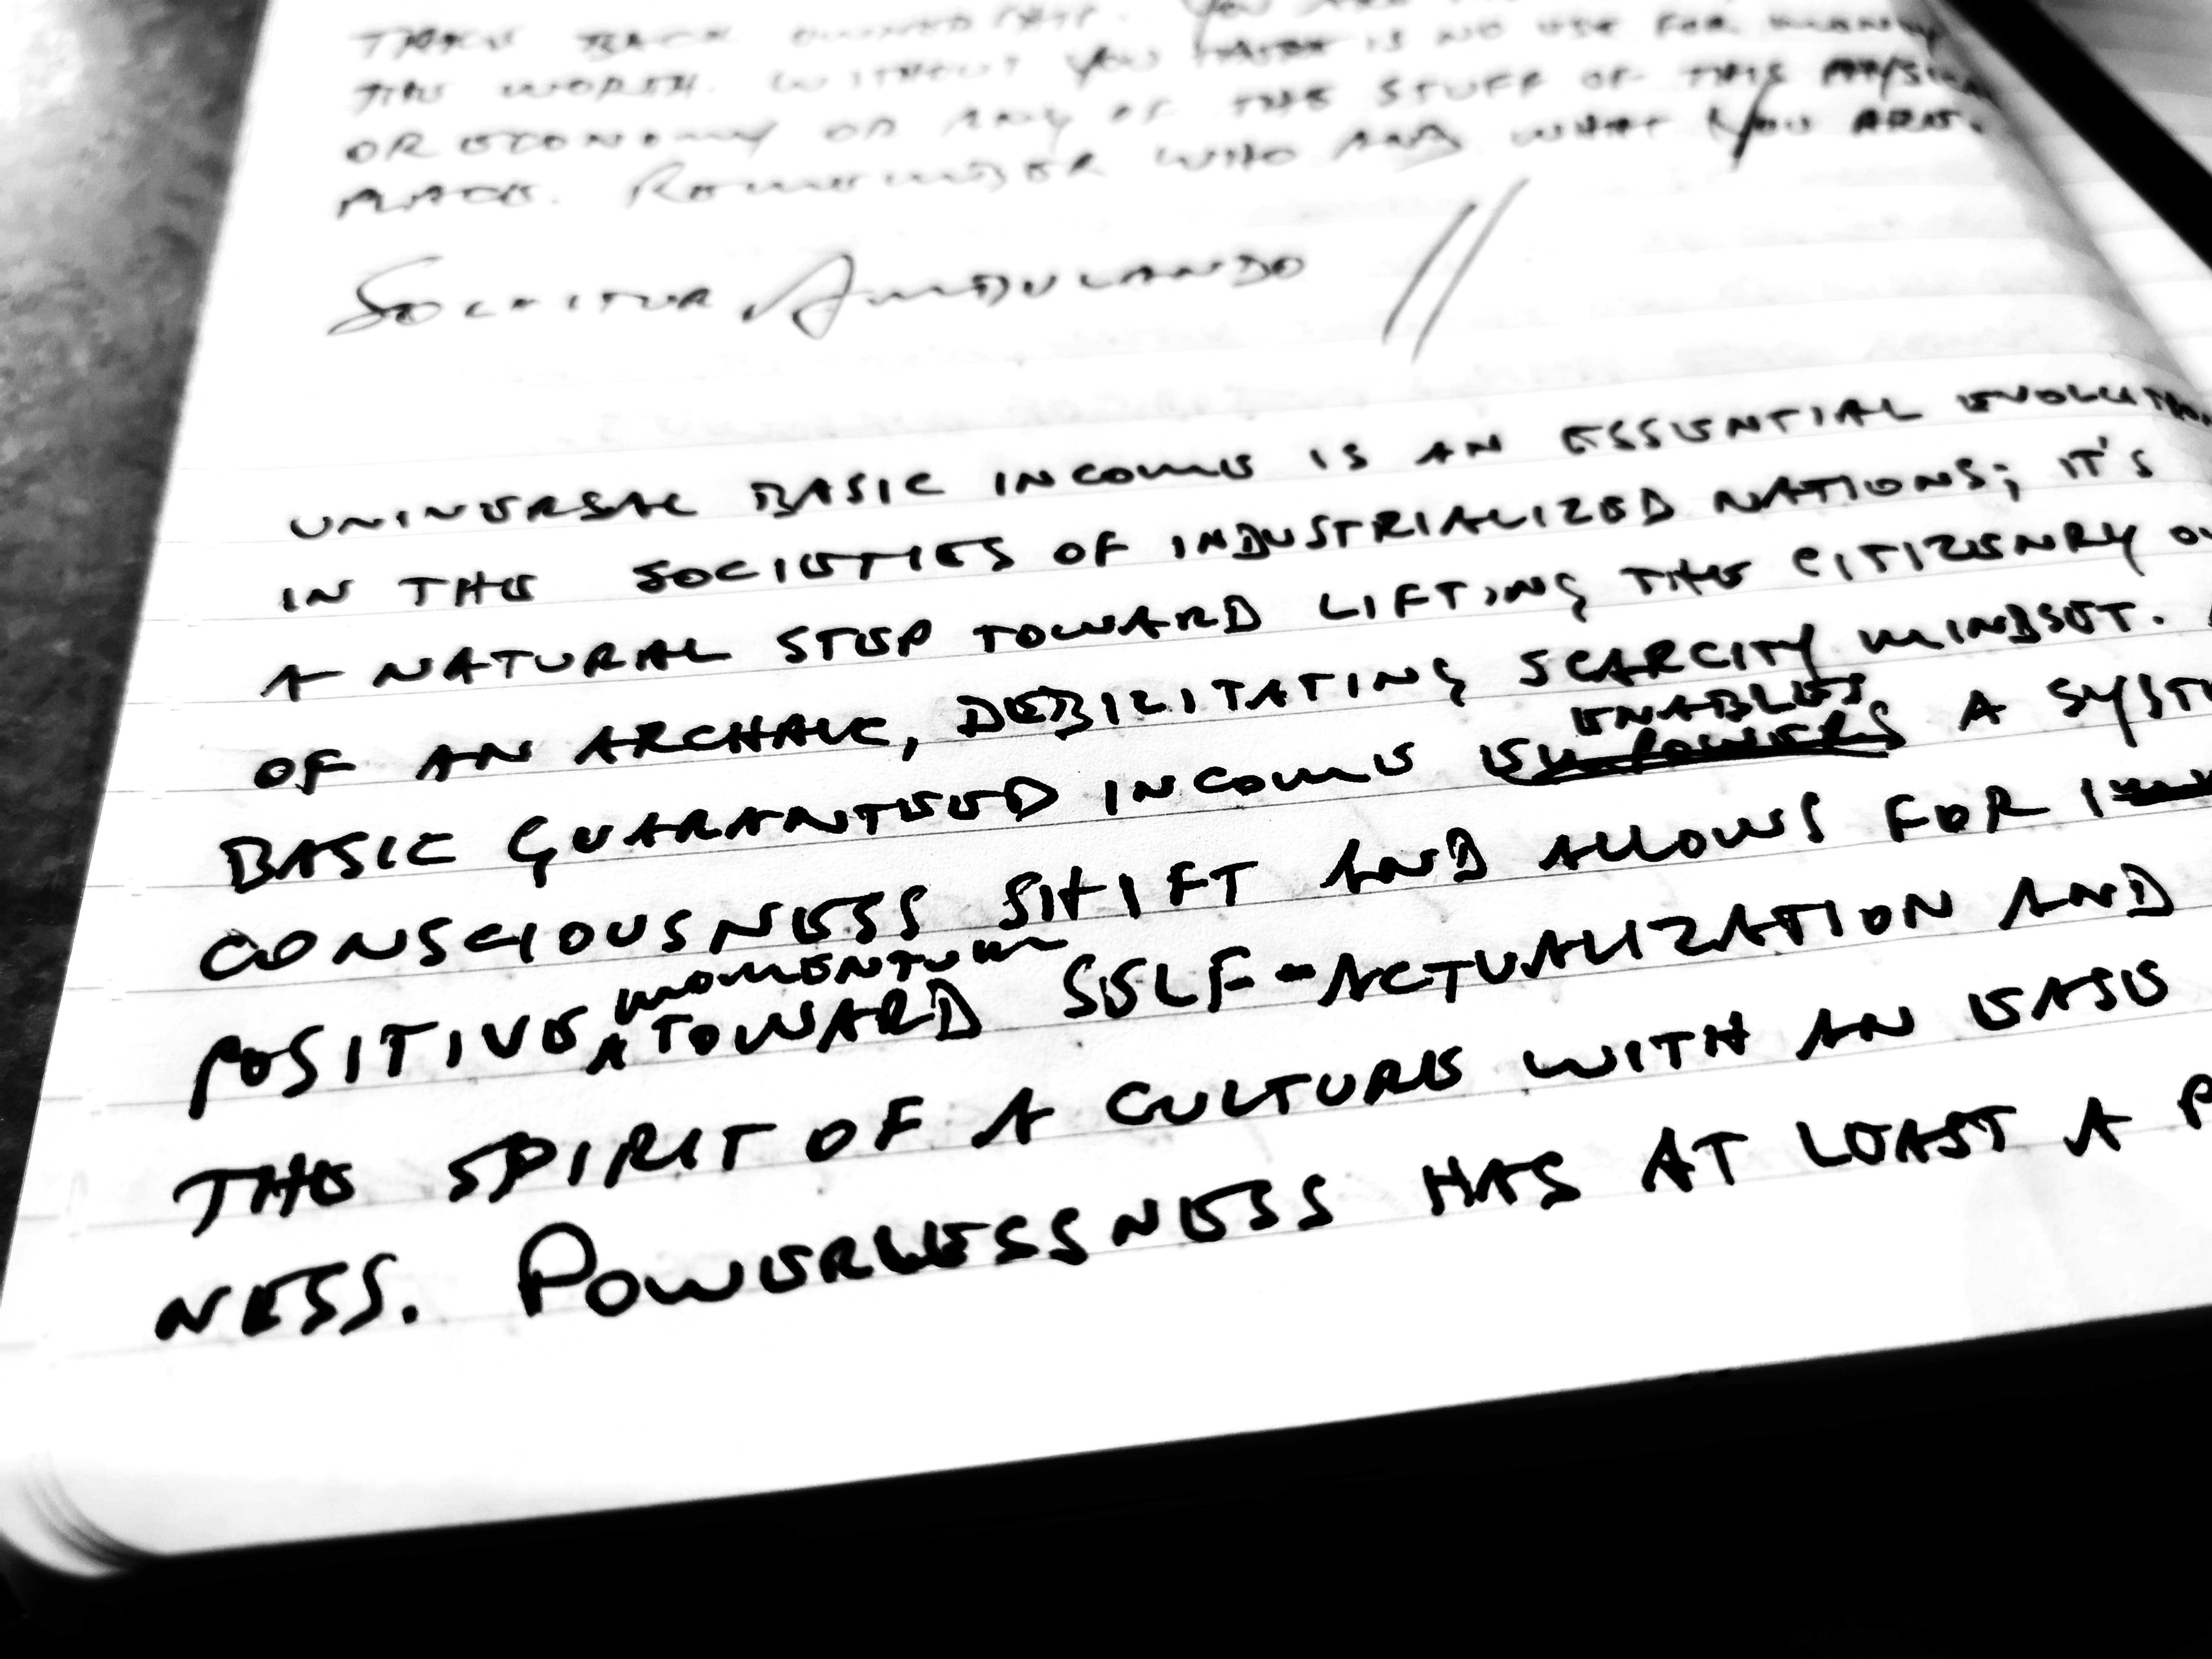 TAKE BACK OWNERSHIP. YOU ARE
THE WORTH. WITHOUT YOU THERE IS NO USE FOR MONEY
OR ECONOMY OR ANY OF THE STUFF OF THIS PHYSICAL
PLACE. REMEMBER WHO AND WHAT YOU ARE.
SOLVITUR AMBULANDO //
UNIVERSAL BASIC INCOME IS AN ESSENTIAL EVOLUTION
IN THE SOCIETIES OF INDUSTRIALIZED NATIONS; IT'S
A NATURAL STEP TOWARD LIFTING THE CITIZENRY OU
OF AN ARCHAIC, DEBILITATING SCARCITY MINDSET.
ENABLES
BASIC GUARANTEED INCOME EMPOWERS A SYST
CONSCIOUSNESS SHIFT AND ALLOWS FOR
MOMENTUM
POSITIVE ^ TOWARD SELF-ACTUALIZATION AND
THE SPIRIT OF A CULTURE WITH AN EASE
NESS. POWERLESSNESS HAS AT LEAST A P